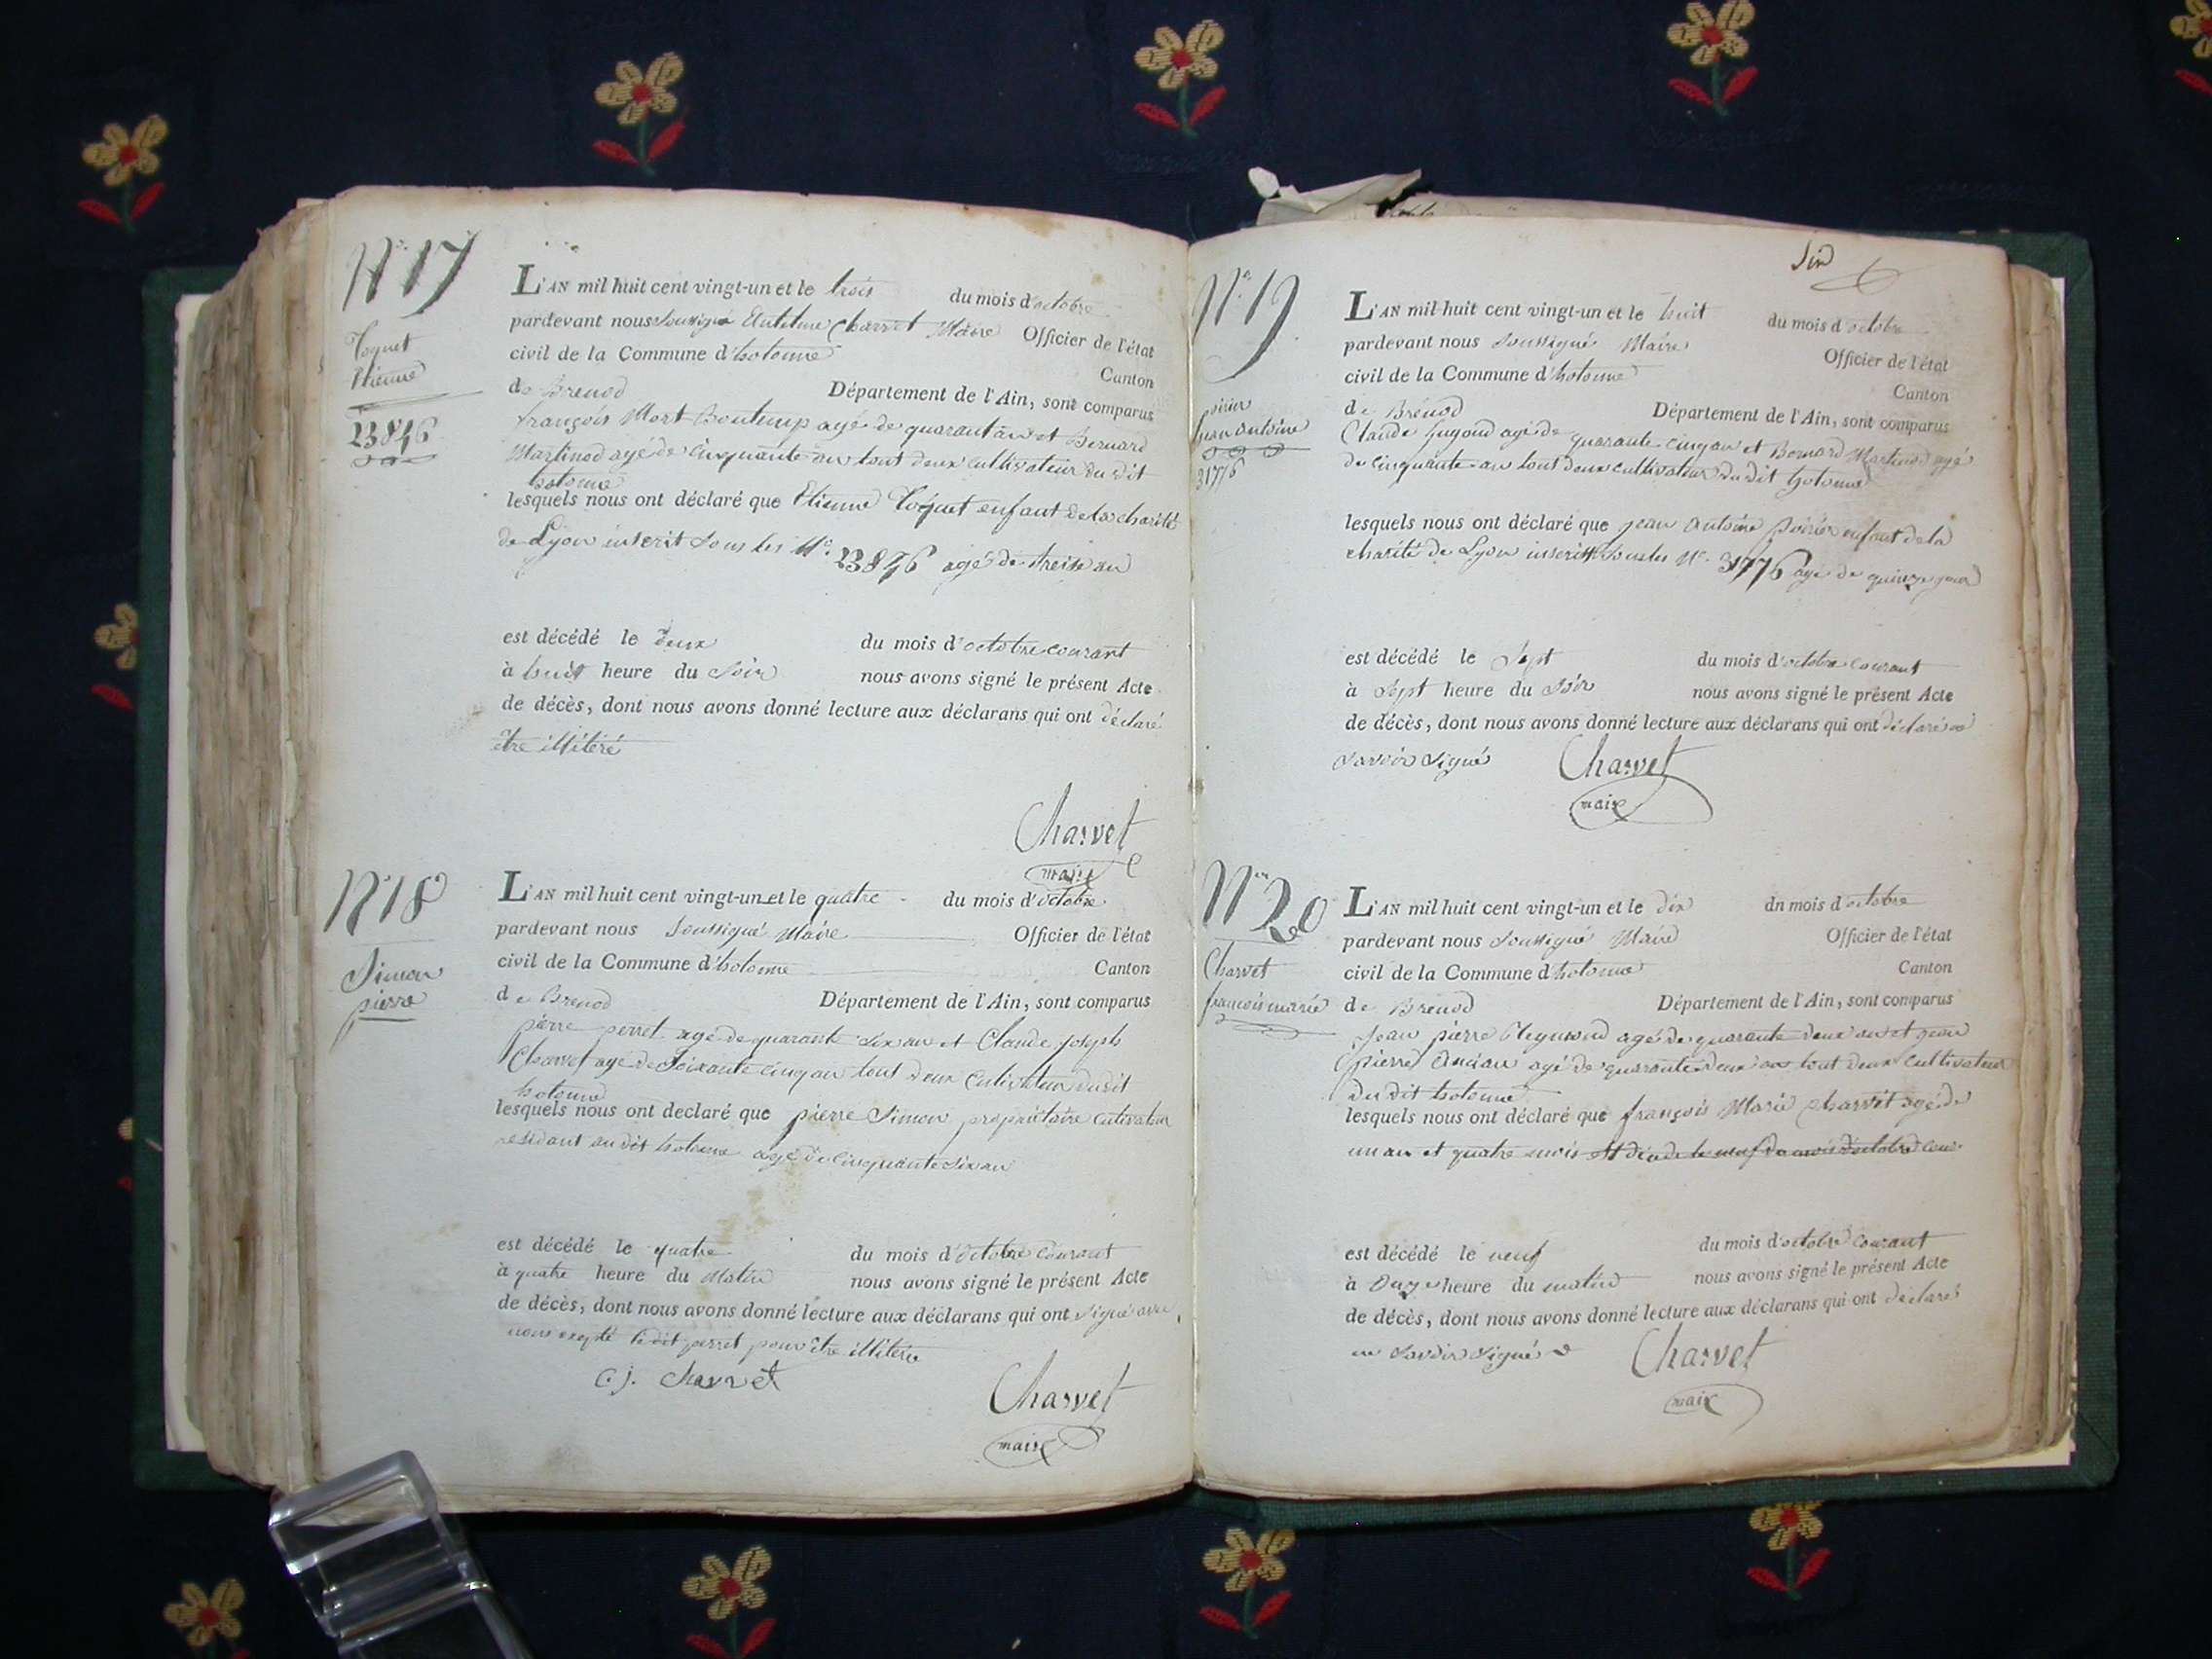 N° 17
Toquet
Etienne
23846
L'AN mil huit cent vingt-un et le trois du mois d'octobre
pardevant nous soussigné Charvet Maire Officier de l'état
civil de la Commune d'hotonne Canton
de Brenod Département de l'Ain, sont comparus
françois Mort agé de quarant an et Bernard
Martinod agé de cinquante an tout deux cultivateur du dit
hotonne
lesquels nous ont déclaré que Etienne Toquet enfant de la charité
de Lyon inscrit sous les N° 23846 agé de treise an
est décédé le deux du mois d'octobre courant
à huit heure du soir nous avons signé le présent Acte
de décès, dont nous avons donné lecture aux déclarans qui ont déclaré
être illitéré
Charvet
maire
N° 18
Simon
pierre
L'AN mil huit cent vingt-un et le quatre du mois d'octobre
pardevant nous soussigné Maire Officier de l'état
civil de la Commune d'hotonne Canton
de Brenod Département de l'Ain, sont comparus
pierre perret agé de quarante six an et Claude joseph
Charvet agé de soixante cinq an tout deux cultivateur du dit
hotonne
lesquels nous ont declaré que pierre Simon propriétaire cultivateur
résidant au dit hotonne agé de cinquante six an
est décédé le quatre du mois d'octobre courant
à quatre heure du matin nous avons signé le présent Acte
de décès, dont nous avons donné lecture aux déclarans qui ont signé avec
nous le dit perret pour être illitéré
C. j. charvet
Charvet
maire
N° 19
jean antoine
31776
L'AN mil huit cent vingt-un et le huit du mois d'octobre
pardevant nous soussigné Maire Officier de l'état
civil de la Commune d'hotonne Canton
de Brénod Département de l'Ain, sont comparus
Claude agé de quarante cinq an et Bernard Martinod agé
de cinquante an tout deux cultivateur du dit hotonne
lesquels nous ont déclaré que jean antoine enfant de la
charité de Lyon inscrit sous les N° 31776 agé de quinze jour
est décédé le sept du mois d'octobre courant
à sept heure du soir nous avons signé le présent Acte
de décès, dont nous avons donné lecture aux déclarans qui ont déclaré ne
savoir signé
Charvet
maire
N° 20
Charvet
françois marie
L'AN mil huit cent vingt-un et le dix dn mois d'octobre
pardevant nous soussigné Maire Officier de l'état
civil de la Commune d'hotonne Canton
de Brenod Département de l'Ain, sont comparus
Jean pierre agé de quarante deux an et jean
pierre Ancian agé de quarante deux an tout deux cultivateur
du dit hotonne
lesquels nous ont déclaré que françois Marie charvet agé de
un an et quatre mois
est décédé le neuf du mois d'octobre courant
à onze heure du matin nous avons signé le présent Acte
de décès, dont nous avons donné lecture aux déclarans qui ont déclaré
ne savoir signé
Charvet
maire